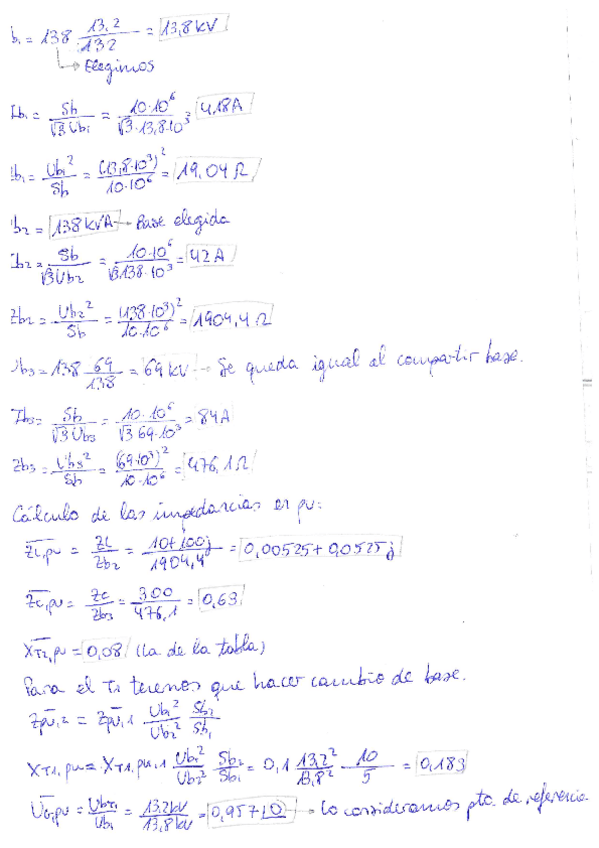 b₁ = 138 13,2/132 = 13,8 kV
Elegimos
Ib₁ = Sb/√3 Ub₁ = 10·10⁶/√3·13,8·10³ = 418A
Ub₁²/Sb = (13,8·10³)²/10·10⁶ = 19,04 Ω
b₂ = 138 kVA → Base elegida
Ib₂ = Sb/√3 Ub₂ = 10·10⁶/√3 138·10³ = 42 A
Zb₂ = Ub₂²/Sb = (138·10³)²/10·10⁶ = 1904,4 Ω
Ub₃ = 138 69/138 = 69 kV → Se queda igual al compartir base.
Ib₃ = Sb/√3 Ub₃ = 10·10⁶/√3 69·10³ = 84A
Zb₃ = Ub₃²/Sb = (69·10³)²/10·10⁶ = 476,1 Ω
Cálculo de las impedancias en pu:
ZL,pu = ZL/Zb₂ = 10+100j/1904,4 = 0,00525 + 0,0525j
Zc,pu = Zc/Zb₃ = 300/476,1 = 0,63
XT2,pu = 0,08 (La de la tabla)
Para el T1 tenemos que hacer cambio de base.
Zpu,2 = Zpu,1 Ub₁²/Ub₂² Sb₂/Sb₁
XT1,pu = XT1,pu,1 Ub₁²/Ub₂² Sb₂/Sb₁ = 0,1 13,2²/13,8² 10/5 = 0,183
UG,pu = UbT1/Ub₁ = 13,2kV/13,8kV = 0,957∠0 → Lo consideramos pto. de referencia.